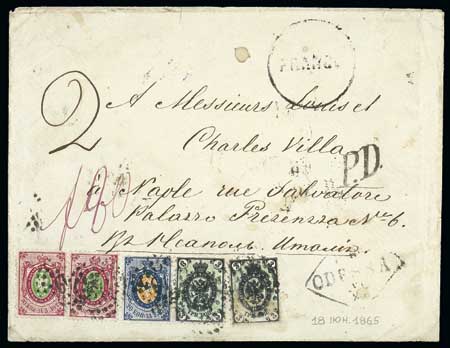 FRANCO
2
A Messieurs Louis et
Charles Villa
P.D.
à Naple rue Salvatore
Palazzo Presenzza Nro 6.
Въ Неаполь Италію
ODESSA
18 ІЮН. 1865